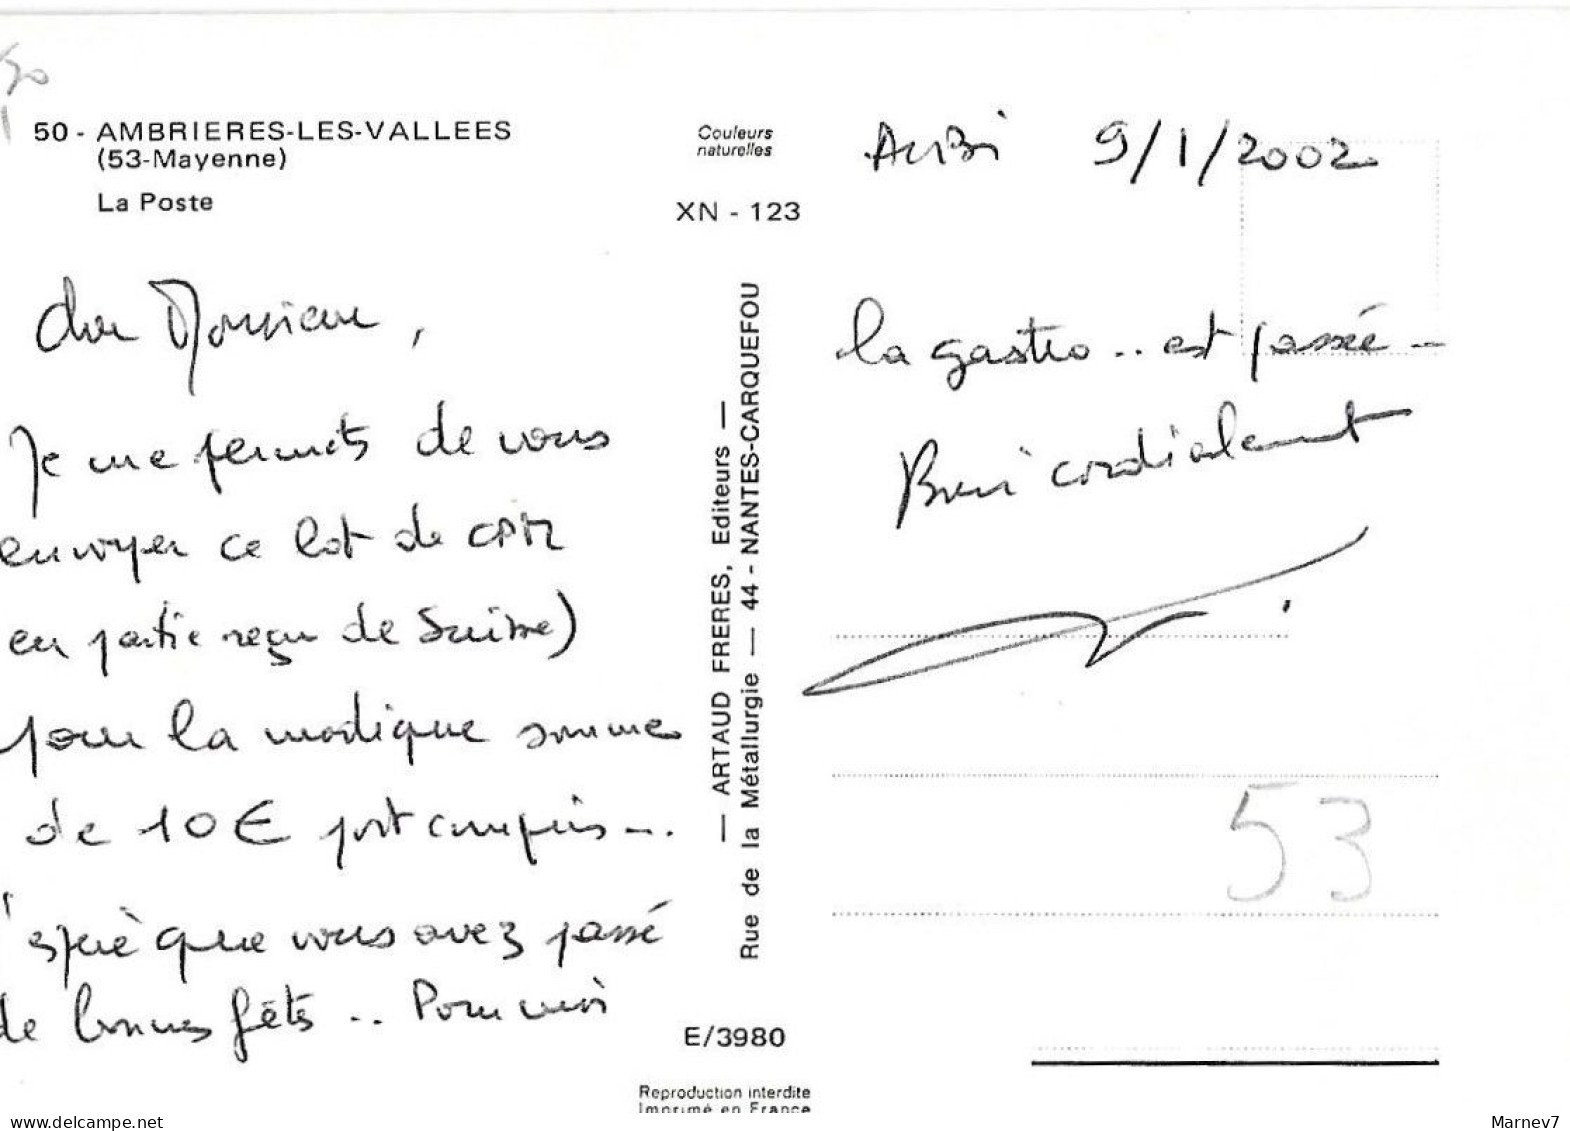 50
50 - AMBRIERES-LES-VALLEES
(53-Mayenne)
La Poste
Couleurs
naturelles
XN - 123
Cher Monsieur,
Je me permets de vous
envoyer ce lot de CPM
en partie reçu de Suisse)
pour la modique somme
de 10 € port compris...
J'espère que vous avez passé
de bonnes fêtes .. Pour moi
— ARTAUD FRERES, Editeurs —
Rue de la Métallurgie — 44 - NANTES-CARQUEFOU
E/3980
Reproduction interdite
Imprimé en France
9/1/2002
la gastro .. est passée ..
Bien cordialement
53
https://www.delcampe.net
Marnev7